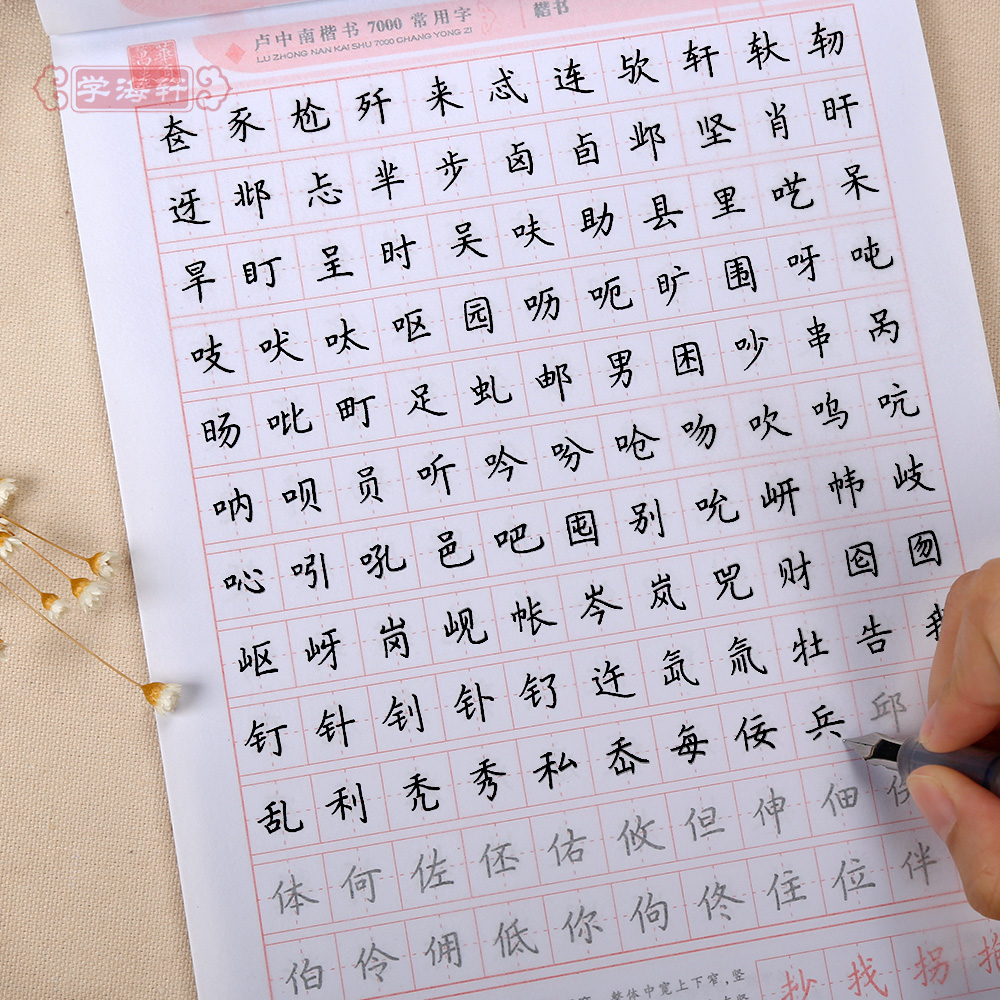 卢中南楷书 7000 常用字
楷书
LU ZHONG NAN KAI SHU 7000 CHANG YONG ZI
学海轩
奁 豕 尬 歼 来 忒 连 欤 轩 轪 轫
迓 邶 忐 芈 步 卤 卣 邺 坚 肖 旰
旱 盯 呈 时 吴 呋 助 县 里 呓 呆
吱 吠 呔 呕 园 呖 呃 旷 围 呀 吨
旸 吡 町 足 虬 邮 男 困 吵 串 呙
呐 呗 员 听 吟 吩 呛 吻 吹 呜 吭
吣 吲 吼 邑 吧 囤 别 吮 岍 帏 岐
岖 岈 岗 岘 帐 岑 岚 兕 财 囵 囫
钉 针 钊 钋 钌 迕 氙 氚 牡 告 我
乱 利 秃 秀 私 岙 每 佞 兵 邱
体 何 佐 伾 佑 攸 但 伸 佃
伯 伶 佣 低 你 佝 佟 住 位 伴
抄 找 拐
整体中宽上下窄,竖